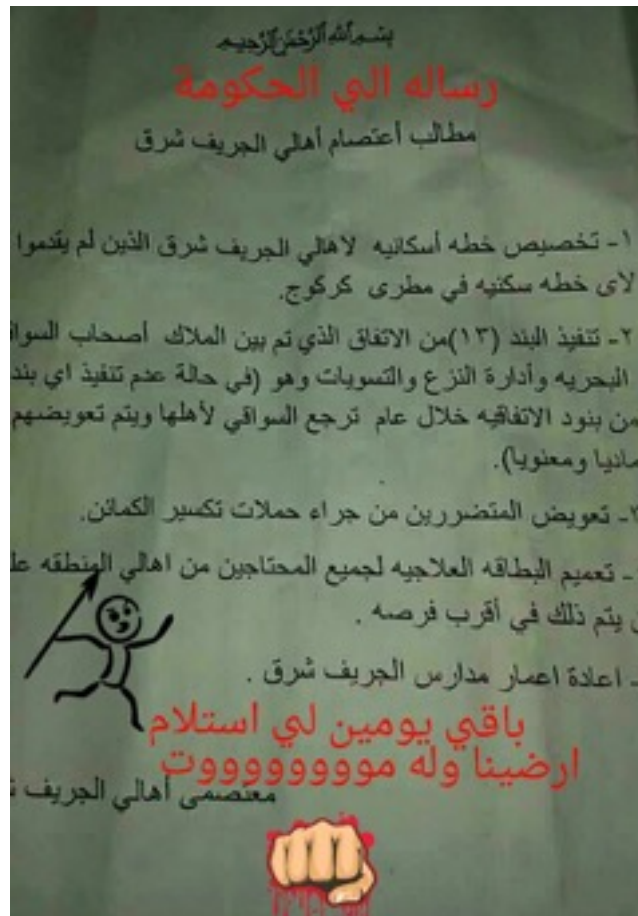 بسم الله الرحمن الرحيم
رساله الي الحكومة
مطالب أعتصام أهالي الجريف شرق
١- تخصيص خطه أسكانيه لاهالي الجريف شرق الذين لم يقدموا
لاى خطه سكنيه في مطرى كركوج.
٢- تنفيذ البند (١٣)من الاتفاق الذي تم بين الملاك أصحاب السوا
البحريه وأدارة النزع والتسويات وهو (في حالة عدم تنفيذ اي بند
من بنود الاتفاقيه خلال عام ترجع السواقي لأهلها ويتم تعويضهم
ماديا ومعنويا).
- تعويض المتضررين من جراء حملات تكسير الكمائن.
- تعميم البطاقه العلاجيه لجميع المحتاجين من اهالي المنطقه
يتم ذلك في أقرب فرصه .
- اعادة اعمار مدارس الجريف شرق .
باقي يومين لي استلام
ارضينا وله مووووووووت
معتصمى أهالي الجريف